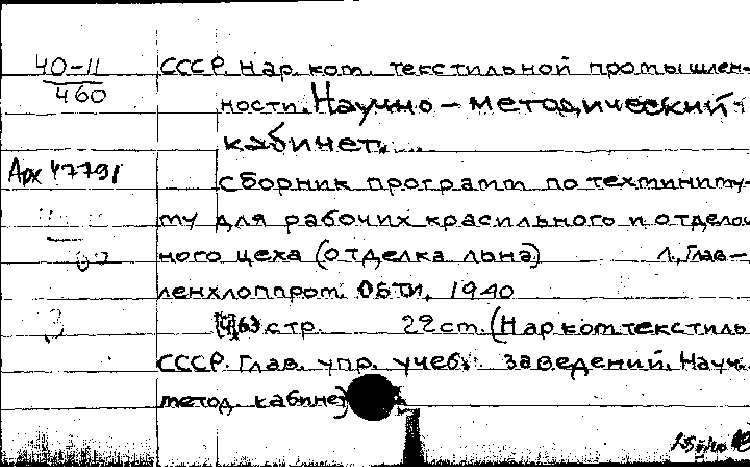 40-11
460
СССР. Нар. ком. текстильной промышлен-
ности. Научно-методический
кабинет....
Арх 47791
Сборник программ по техминиму-
му для рабочих красильного и отделоч
ного цеха (отделка льна) Л, Глав-
ленхлоппром. ОБТИ, 1940
стр. 22 ст. (Наркомтекстиль
СССР. Глав. упр. учебн. заведений. Науч.
метод. кабинет)